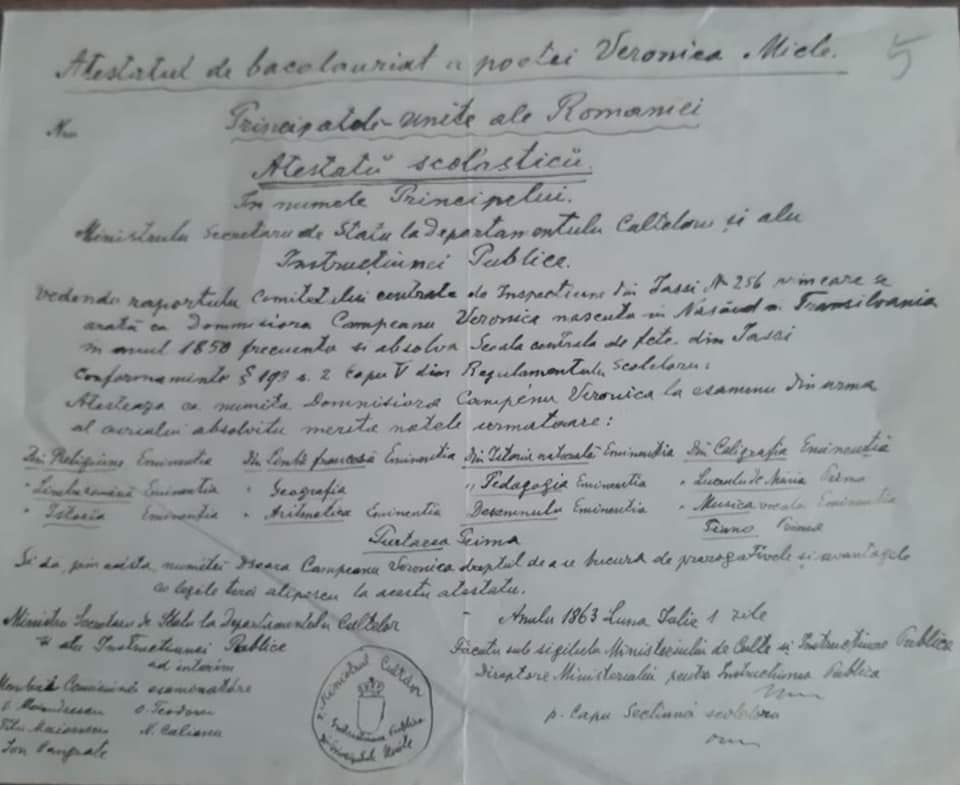 5
Atestatul de bacalauriat a poetei Veronica Micle.
No
Principatele-unite ale Romaniei
Atestatŭ scolasticŭ.
In numele Principelui.
Ministrulu Secretaru de Statu la Departamentulu Culteloru și alu
Instrucțiunei Publice.
Vedendu raportulu Comitetului centrale de Inspectiune din Iassi No 256 prin care se
arată ca Domnisiora Campeanu Veronica nascuta in Nasăud Transilvania
in anul 1850 frecuenta si absolva Scola centrala de fete din Iassi
conformamente § 193 s. 2 Capu V din Regulamentulu Scoleloru:
Atesteaza ca numita Domnisiora Campénu Veronica la esamenu din urma
al absolvitu merita notele urmatoare:
Din Religiune Eminentia Din Limba francesă Eminentia Din Istoria naturală Eminentia Din Caligrafia Eminentia
" Limba română Eminentia " Geografia " Pedagogia Eminentia " Lucrulu de Mâna Prima
" Istoria Eminentia " Aritmetica Eminentia Desemnulu Eminentia " Musica vocala Eminentia
Piano Prima
Purtarea Prima
Si da, prin acesta, numitei Dsoara Campeanu Veronica dreptul de a se bucura de prerogativele si avantagele
ce legile terei alipescu la acestu atestatu.
Anulu 1863 Luna Iulie 1 zile
Ministru Secretaru de Statu la Departamentulu Cultelor
si alu Instructiunei Publice
ad interim
Facutu sub sigilulu Ministeriului de Culte si Instructiune Publica
Directore Ministerialu pentru Instructiunea Publica
Membrii Comisiunei esamenatóre
O. Teodoru
Titu Maiorescu N. Culianu
Ion Pangrate
p. Capu Sectiunei scoleloru
Ministerul Cultelor
Instructiunea Publica
Principatele Unite